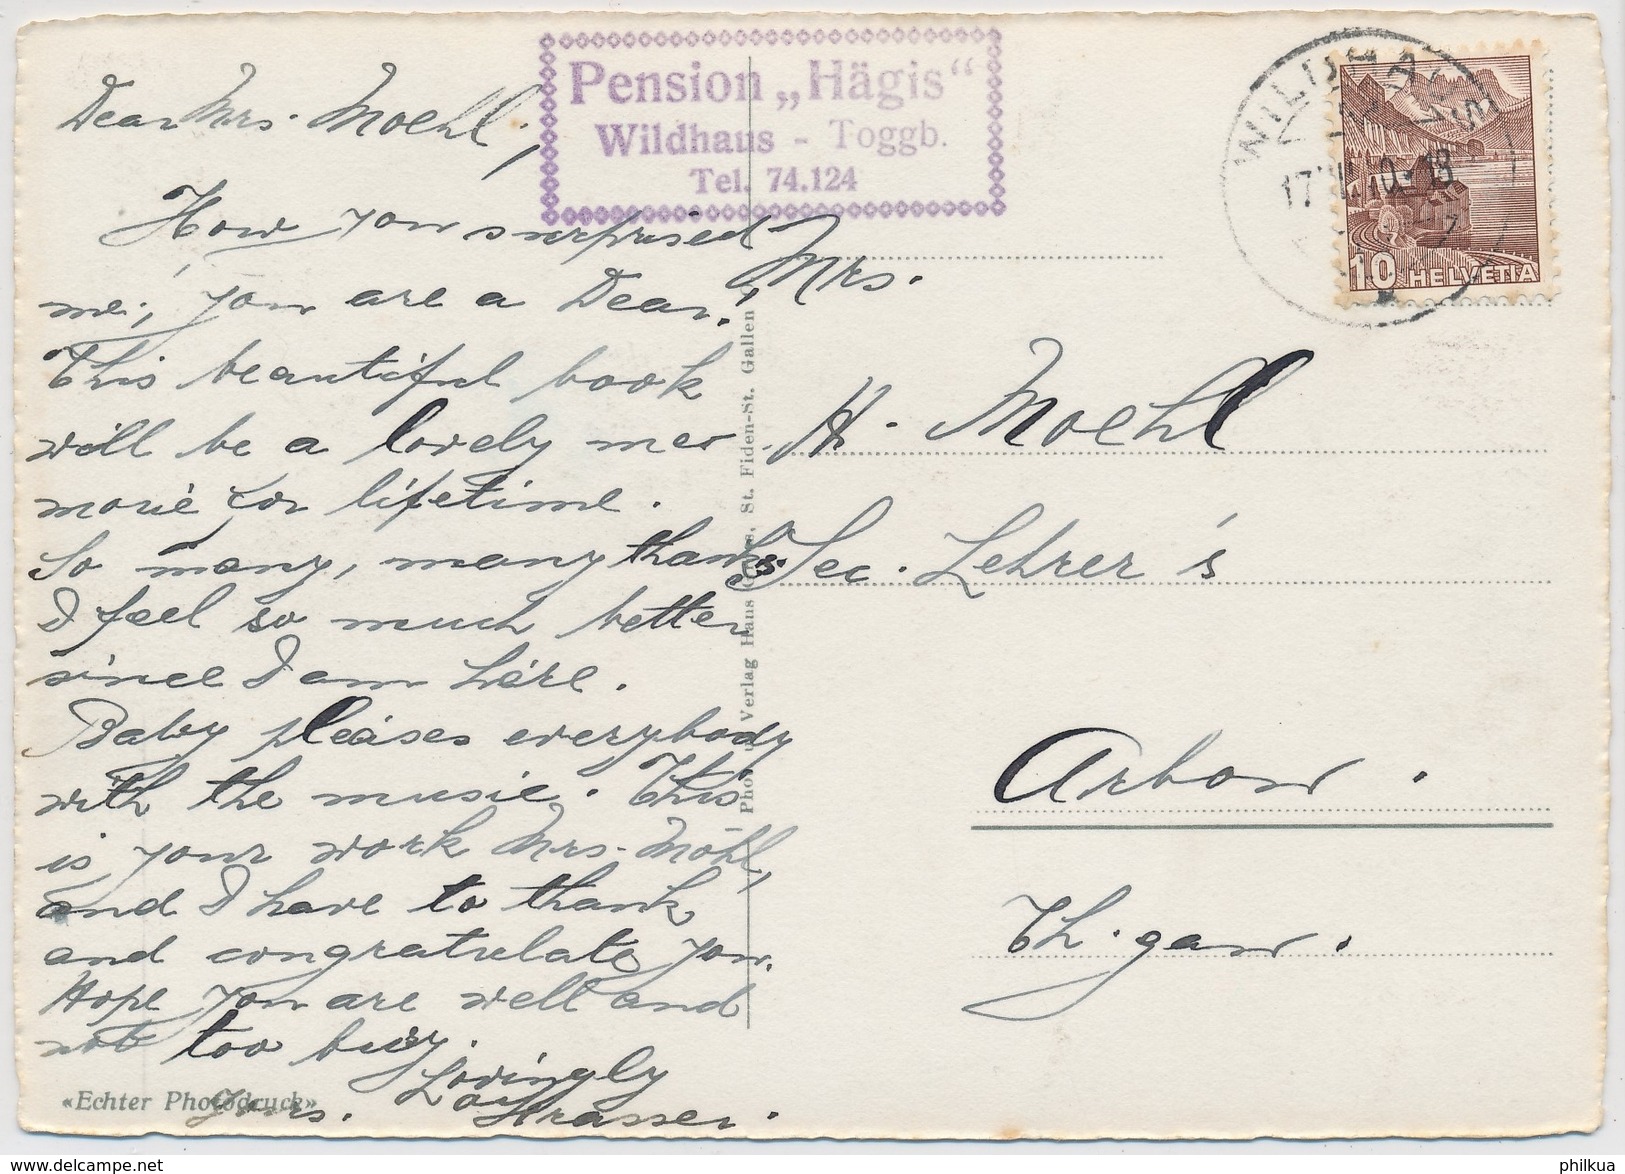 Pension „Hägis“
Wildhaus - Toggb.
Tel. 74.124
WILDHAUS
10 HELVETIA
Dear Mrs. Moehl,
How you surprised
me, you are a Dear!
This beautiful book
will be a lovely me-
morie for lifetime.
So many, many thanks.
I feel so much better
since I am here.
Baby pleases everybody
with the music. This
is your work Mrs. Möhl,
and I have to thank
and congratulate you.
Hope you are well and
not too busy.
Lovingly
Yours.
Strasser.
«Echter Photodruck»
Verlag Hans St. Fiden-St. Gallen
Mrs.
H. Moehl
Sec. Lehrer's
Arbon.
Th. gau.
philkua